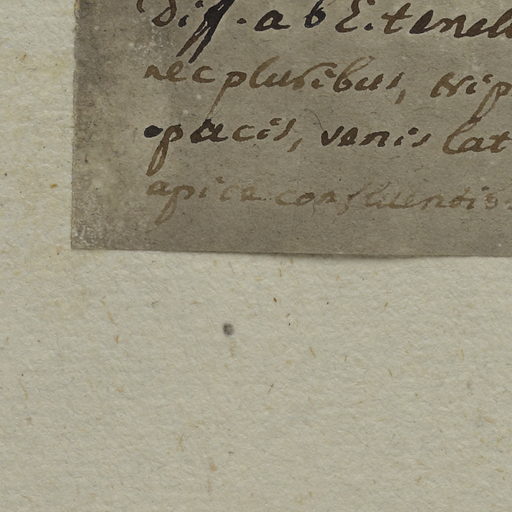 Diff. ab E. tenel
nec pluribus, trip
opacis, venis lat
apice confluentio